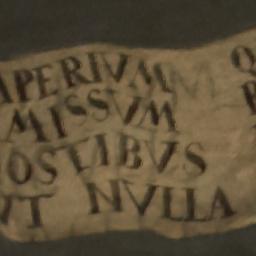 MPERIVM
MISSVM
OSTIBVS
VT NVLLA